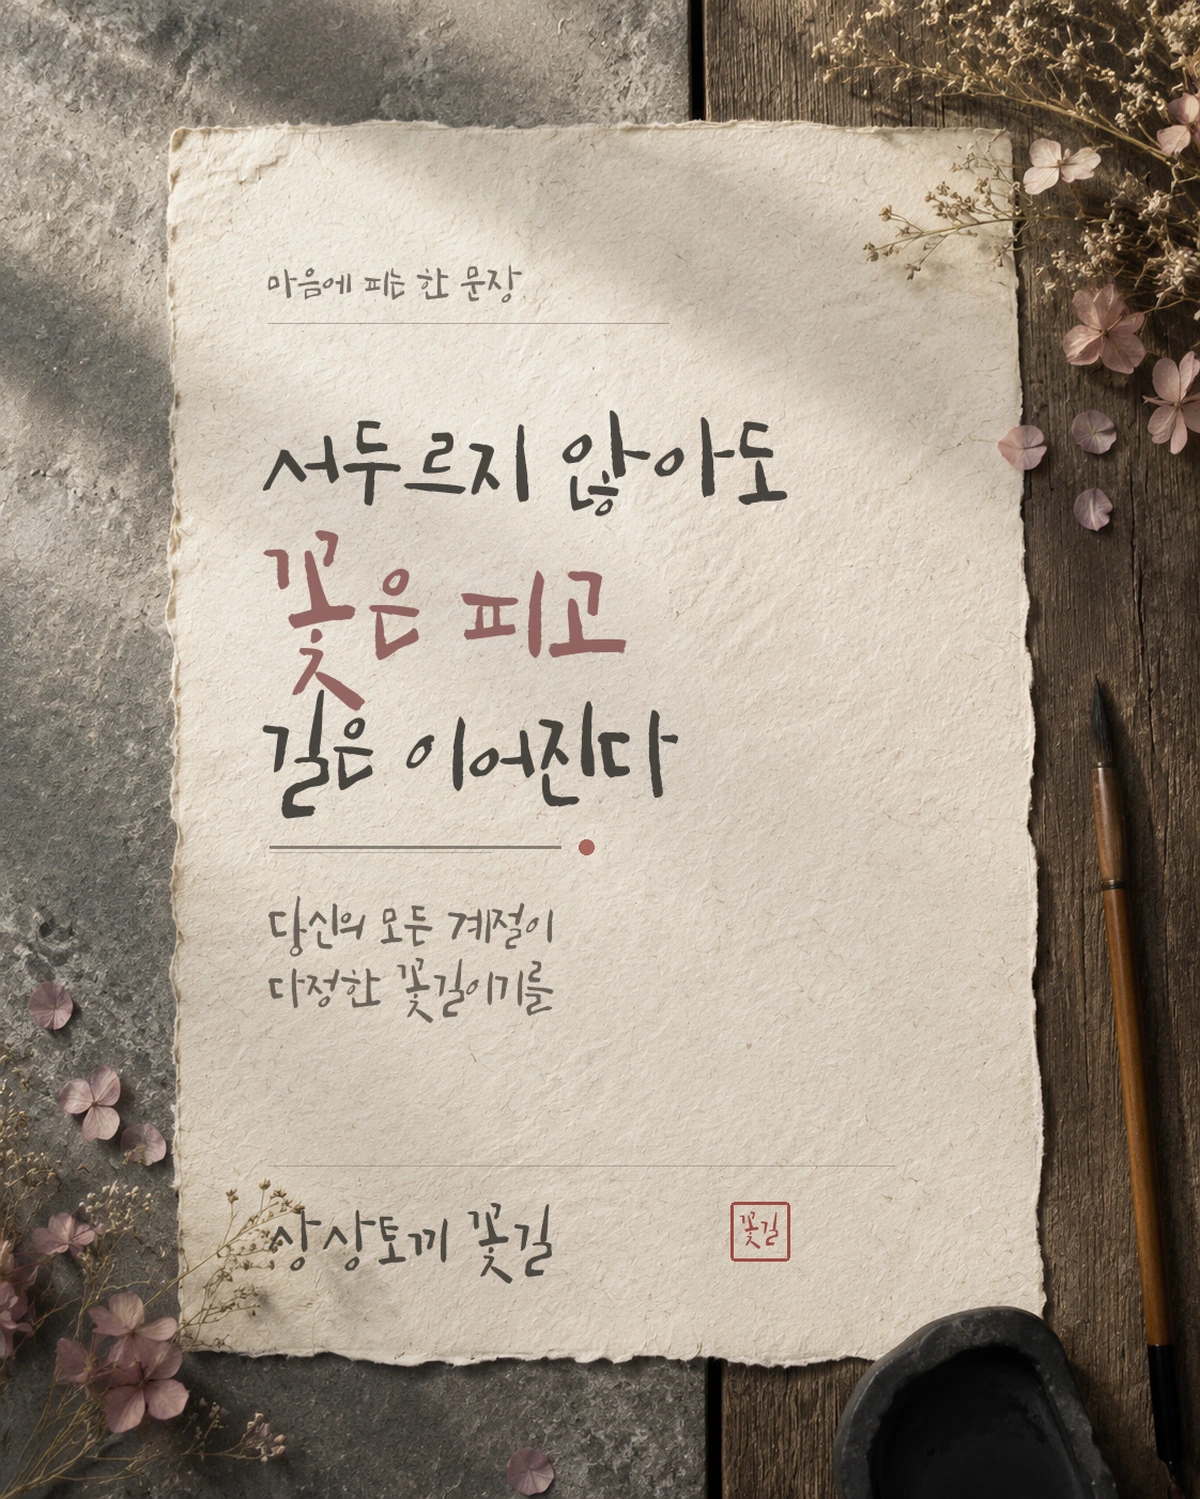 마음에 피는 한 문장
서두르지 않아도
꽃은 피고
길은 이어진다
당신의 모든 계절이
다정한 꽃길이기를
상상토끼 꽃길
꽃길